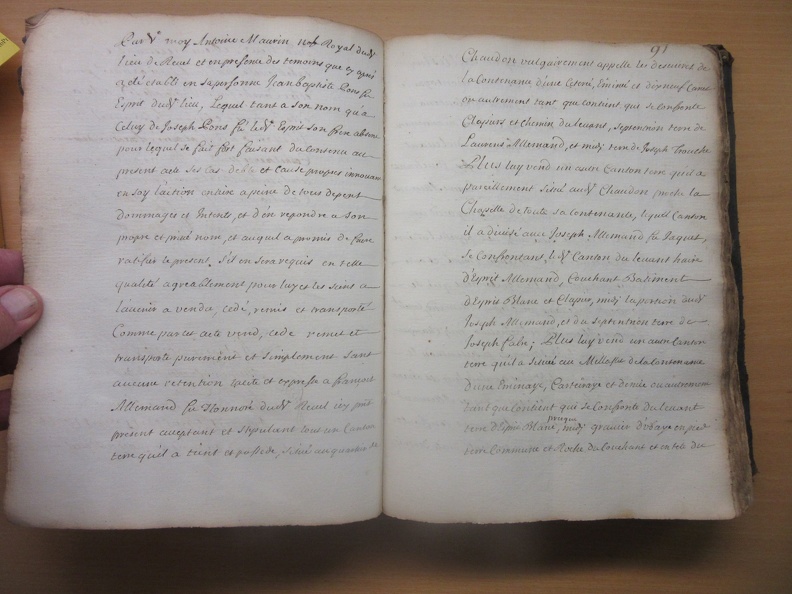 moy Antoine Maurin Royal dud
lieu de et en presence des temoins que cy apres
a été etabli en sa personne Jean baptiste Pons fu
Esprit dud lieu, Lequel tant a son nom qu'a
Celuy de Joseph Pons fu led Esprit son frere absent
pour lequel se fait fort faisant du contenu au
present acte ses cas debte et Cause propres innouant
en soy l'action entiere a peine de tous depens
dommages et Interets, et d'en repondre a son
propre et privé nom, et auquel a promis de faire
ratifier le present, s'il en sera requis en telle
qualité agreablement pour luy et les siens a
l'auenir a vendu, cedé, remis et transporté
Comme par cet acte vend, cede remet et
transporte purement et simplement sans
aucune retention tacite et expresse a françois
Allemand fu Honnoré dud icy pnt
present acceptant et stipulant tout un Canton
terre qu'il a tient et possede, situé au quartier de
91
Chaudon vulgairement appellé les dessuires de
la Contenance d'une et
ou autrement tant que contient qui se confronte
Clapiers et chemin du leuant, septentrion terre de
Laurens Allemand, et midy terre de Joseph
Plus luy vend un autre Canton terre qu'il a
pareillement situé aud Chaudon proche la
Chapelle de toute sa contenance, lequel Canton
il a divisé avec Joseph Allemand fu Jaques,
se Confrontant led Canton du leuant haire
d'Esprit Allemand, Couchant Batiment
d'Esprit Blanc et Clapier, midy la portion dud
Joseph Allemand, et du septentrion terre de
Joseph fabre; Plus luy vend un autre Canton
terre qu'il a situé au de la Contenance
d'une Eminaye, Carteiraye et demie ou autrement
tant que Contient qui se Confronte du leuant
presque
terre d'Esprit Blanc, midy gravier d'ubaye
terre Commune et Roche du Couchant et en teste du